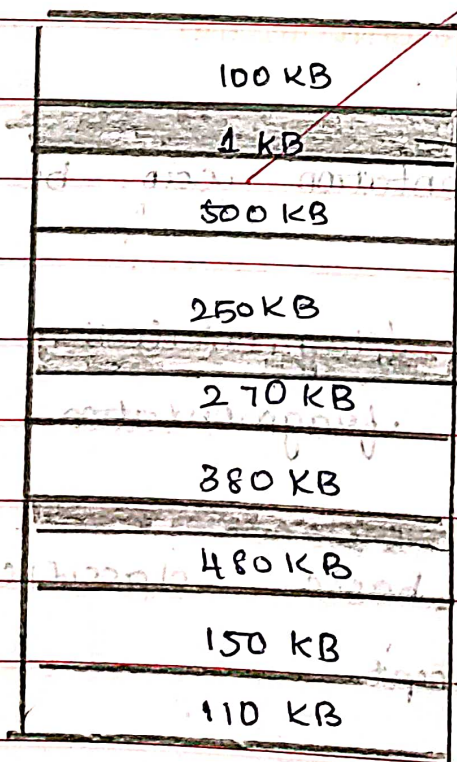 100 KB
1 KB
500 KB
250 KB
270 KB
380 KB
480 KB
150 KB
110 KB